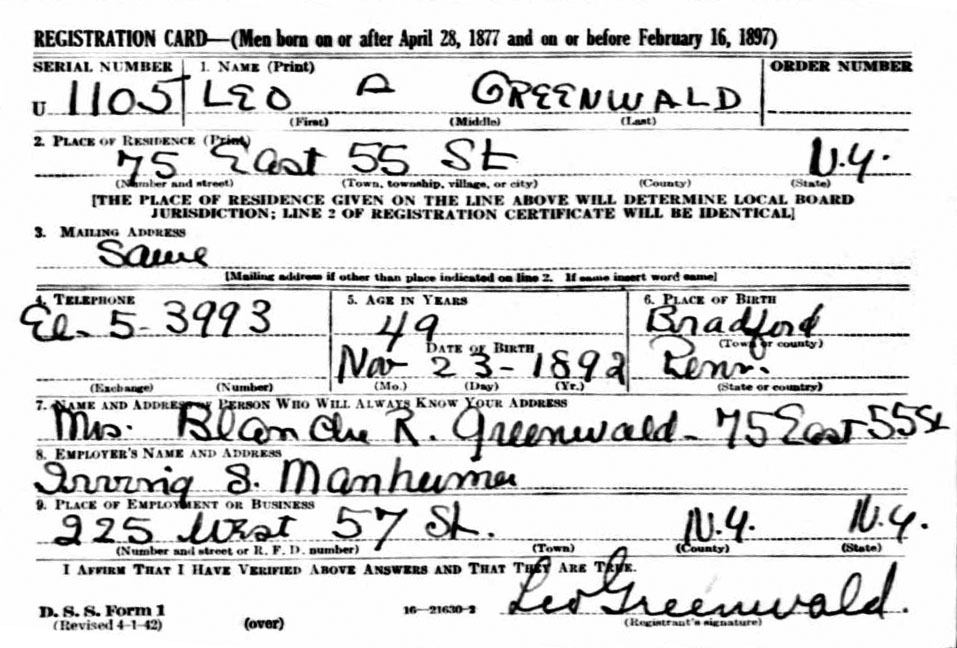 REGISTRATION CARD—(Men born on or after April 28, 1877 and on or before February 16, 1897)
SERIAL NUMBER 1. NAME (Print) ORDER NUMBER
U 1105 LEO A GREENWALD
(First) (Middle) (Last)
2. PLACE OF RESIDENCE (Print)
75 East 55 St N.Y.
(Number and street) (Town, township, village, or city) (County) (State)
[THE PLACE OF RESIDENCE GIVEN ON THE LINE ABOVE WILL DETERMINE LOCAL BOARD
JURISDICTION; LINE 2 OF REGISTRATION CERTIFICATE WILL BE IDENTICAL]
3. MAILING ADDRESS
Same
[Mailing address if other than place indicated on line 2. If same insert word same]
4. TELEPHONE 5. AGE IN YEARS 6. PLACE OF BIRTH
El- 5-3993 49 Bradford
DATE OF BIRTH (Town or county)
Nov 23-1892 Penn.
(Exchange) (Number) (Mo.) (Day) (Yr.) (State or country)
7. NAME AND ADDRESS OF PERSON WHO WILL ALWAYS KNOW YOUR ADDRESS
Mrs. Blanche R. Greenwald- 75 East 55 St
8. EMPLOYER'S NAME AND ADDRESS
Irving S. Manheimer
9. PLACE OF EMPLOYMENT OR BUSINESS
225 West 57 St. N.Y. N.Y.
(Number and street or R. F. D. number) (Town) (County) (State)
I AFFIRM THAT I HAVE VERIFIED ABOVE ANSWERS AND THAT THEY ARE TRUE.
D. S. S. Form 1 16—21630-2 Leo Greenwald.
(Revised 4-1-42) (over) (Registrant's signature)